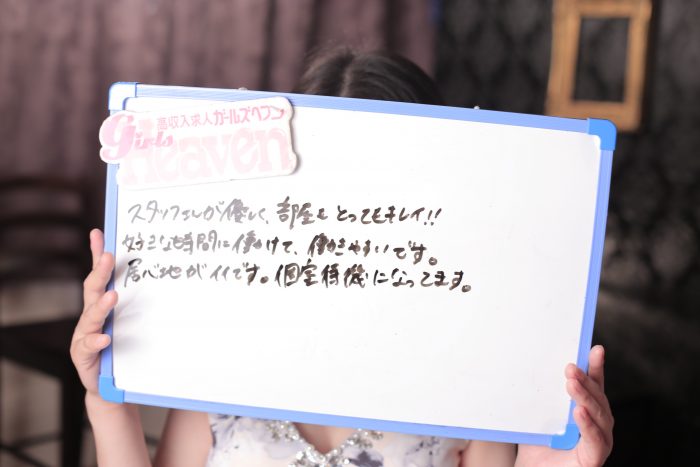 高収入求人ガールズヘブン
Heaven
スタッフさんが優しく、部屋もとってもキレイ!!
好きな時間に働けて、働きやすいです。
居心地がイイです。個室待機になってます。